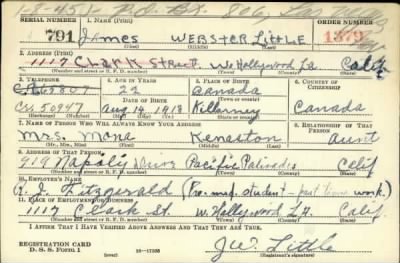 SERIAL NUMBER
1. NAME (Print)
ORDER NUMBER
791
JAmes WEBSTER LITTLE
1379
(First) (Middle) (Last)
2. ADDRESS (Print)
1117 CLARK Street, W. Hollywood La Calif
(Number and street or R. F. D. number) (Town) (County) (State)
3. TELEPHONE
4. AGE IN YEARS
5. PLACE OF BIRTH
6. COUNTRY OF CITIZENSHIP
22
Canada
DATE OF BIRTH
(Town or county)
Cr. 50947
Aug 14 1918
Killarney
Canada
(Mo.) (Day) (Yr.)
(State or country)
7. NAME OF PERSON WHO WILL ALWAYS KNOW YOUR ADDRESS
8. RELATIONSHIP OF THAT PERSON
Mrs. Mona Kenaston
aunt
(Mr., Mrs., Miss) (First) (Middle) (Last)
9. ADDRESS OF THAT PERSON
919 Napoli Drive Pacific Palisades Calif
(Number and street or R. F. D. number) (Town) (County) (State)
10. EMPLOYER'S NAME
R. J. Fitzgerald (Pre. med. student - part time work.)
11. PLACE OF EMPLOYMENT OR BUSINESS
1117 Clark St. W. Hollywood L.A. Calif.
(Number and street or R. F. D. number) (Town) (County) (State)
I AFFIRM THAT I HAVE VERIFIED ABOVE ANSWERS AND THAT THEY ARE TRUE.
REGISTRATION CARD
D. S. S. Form 1
16—17105
JW Little
(Registrant's signature)